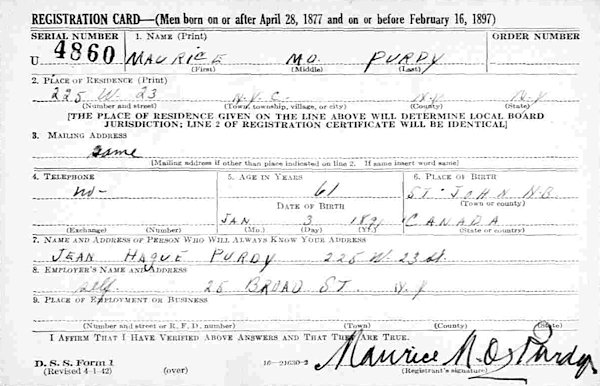 REGISTRATION CARD—(Men born on or after April 28, 1877 and on or before February 16, 1897)
SERIAL NUMBER 1. NAME (Print) ORDER NUMBER
U 4860 MAURICE MO. PURDY
(First) (Middle) (Last)
2. PLACE OF RESIDENCE (Print)
225 W. 23 N.Y.C. N.Y. N.Y
(Number and street) (Town, township, village, or city) (County) (State)
[THE PLACE OF RESIDENCE GIVEN ON THE LINE ABOVE WILL DETERMINE LOCAL BOARD
JURISDICTION; LINE 2 OF REGISTRATION CERTIFICATE WILL BE IDENTICAL]
3. MAILING ADDRESS
Same
[Mailing address if other than place indicated on line 2. If same insert word same]
4. TELEPHONE 5. AGE IN YEARS 6. PLACE OF BIRTH
no- 61 ST. JOHN N.B
DATE OF BIRTH (Town or county)
JAN 3 CANADA
(Exchange) (Number) (Mo.) (Day) (Yr.) (State or country)
7. NAME AND ADDRESS OF PERSON WHO WILL ALWAYS KNOW YOUR ADDRESS
JEAN HAGUE PURDY 225 W. 23 St.
8. EMPLOYER'S NAME AND ADDRESS
Self. 25 BROAD ST. N.Y
9. PLACE OF EMPLOYMENT OR BUSINESS
(Number and street or R. F. D. number) (Town) (County) (State)
I AFFIRM THAT I HAVE VERIFIED ABOVE ANSWERS AND THAT THEY ARE TRUE.
D. S. S. Form 1 Maurice M.O. Purdy
(Revised 4-1-42) (over) 16—21630-2 (Registrant's signature)